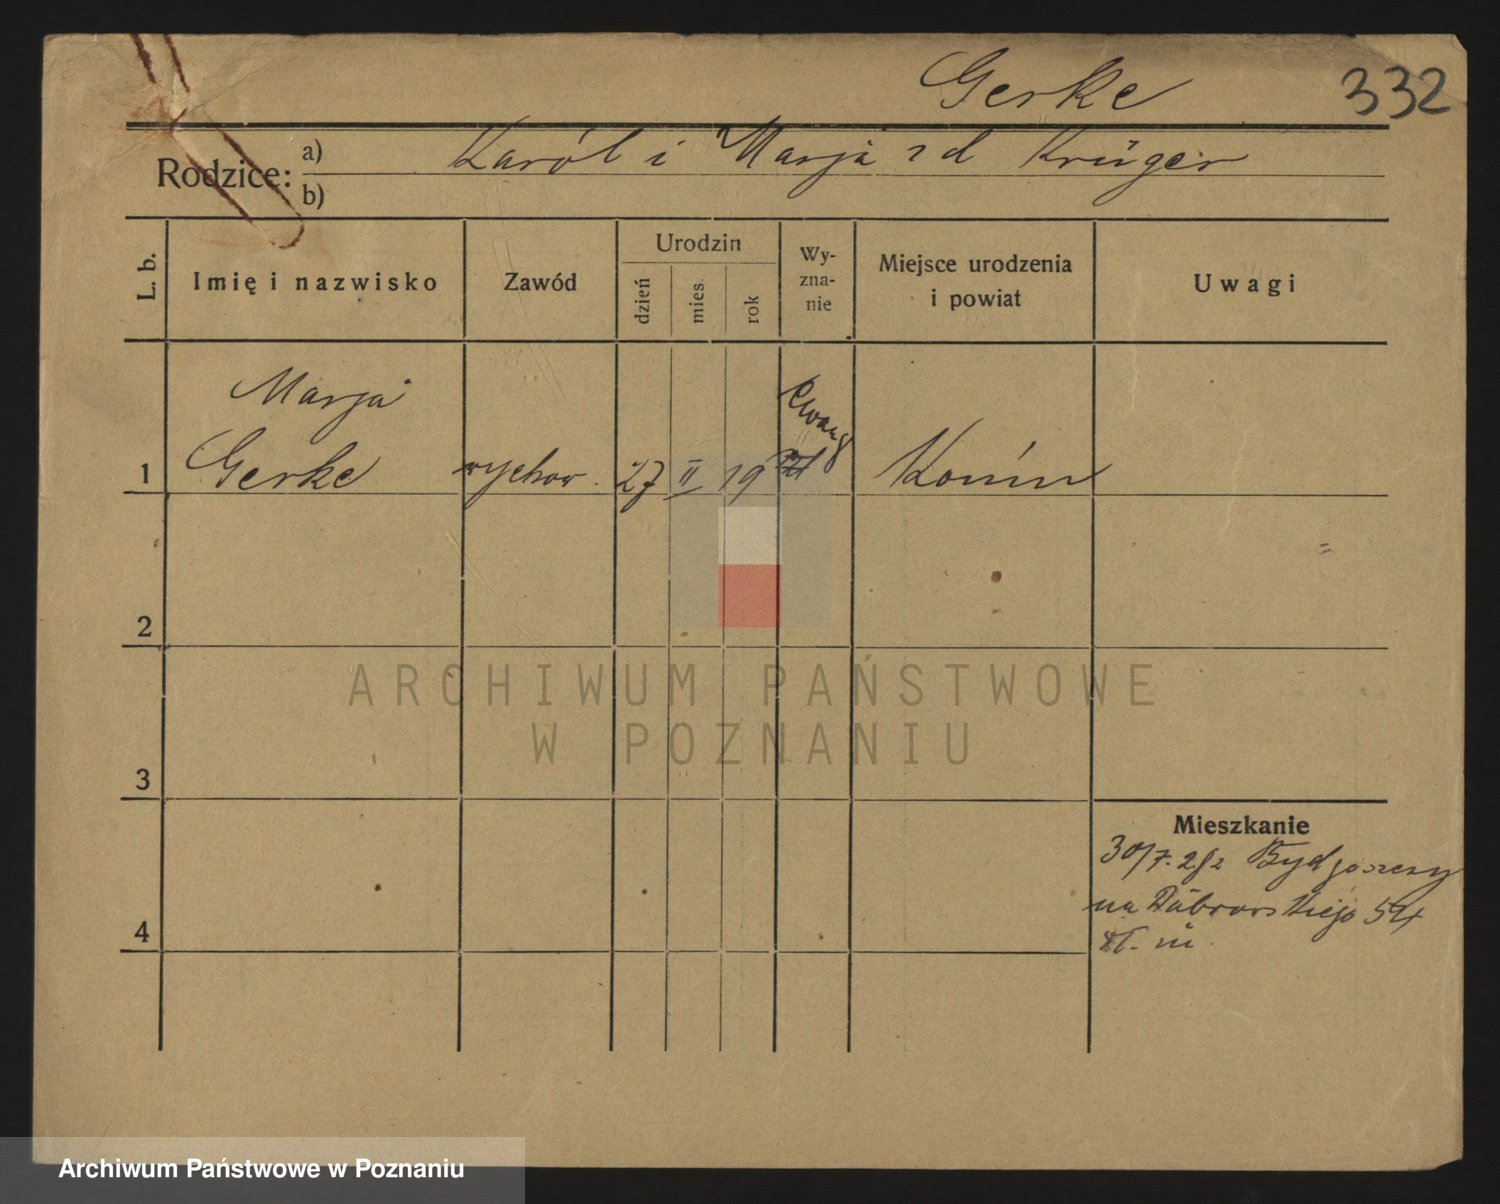 Gerke
332
Rodzice: a) Karól i Marja z d Krüger
b)
L. b.
Imię i nazwisko
Zawód
Urodzin
dzień
mies.
rok
Wy-
zna-
nie
Miejsce urodzenia
i powiat
Uwagi
Marja
ewang
1 Gerke wychow. 27 II 19 Konin
2
ARCHIWUM PAŃSTWOWE
W POZNANIU
3
Mieszkanie
30/7. Bydgoszczy
na Dąbrowskiego 54
4
Archiwum Państwowe w Poznaniu